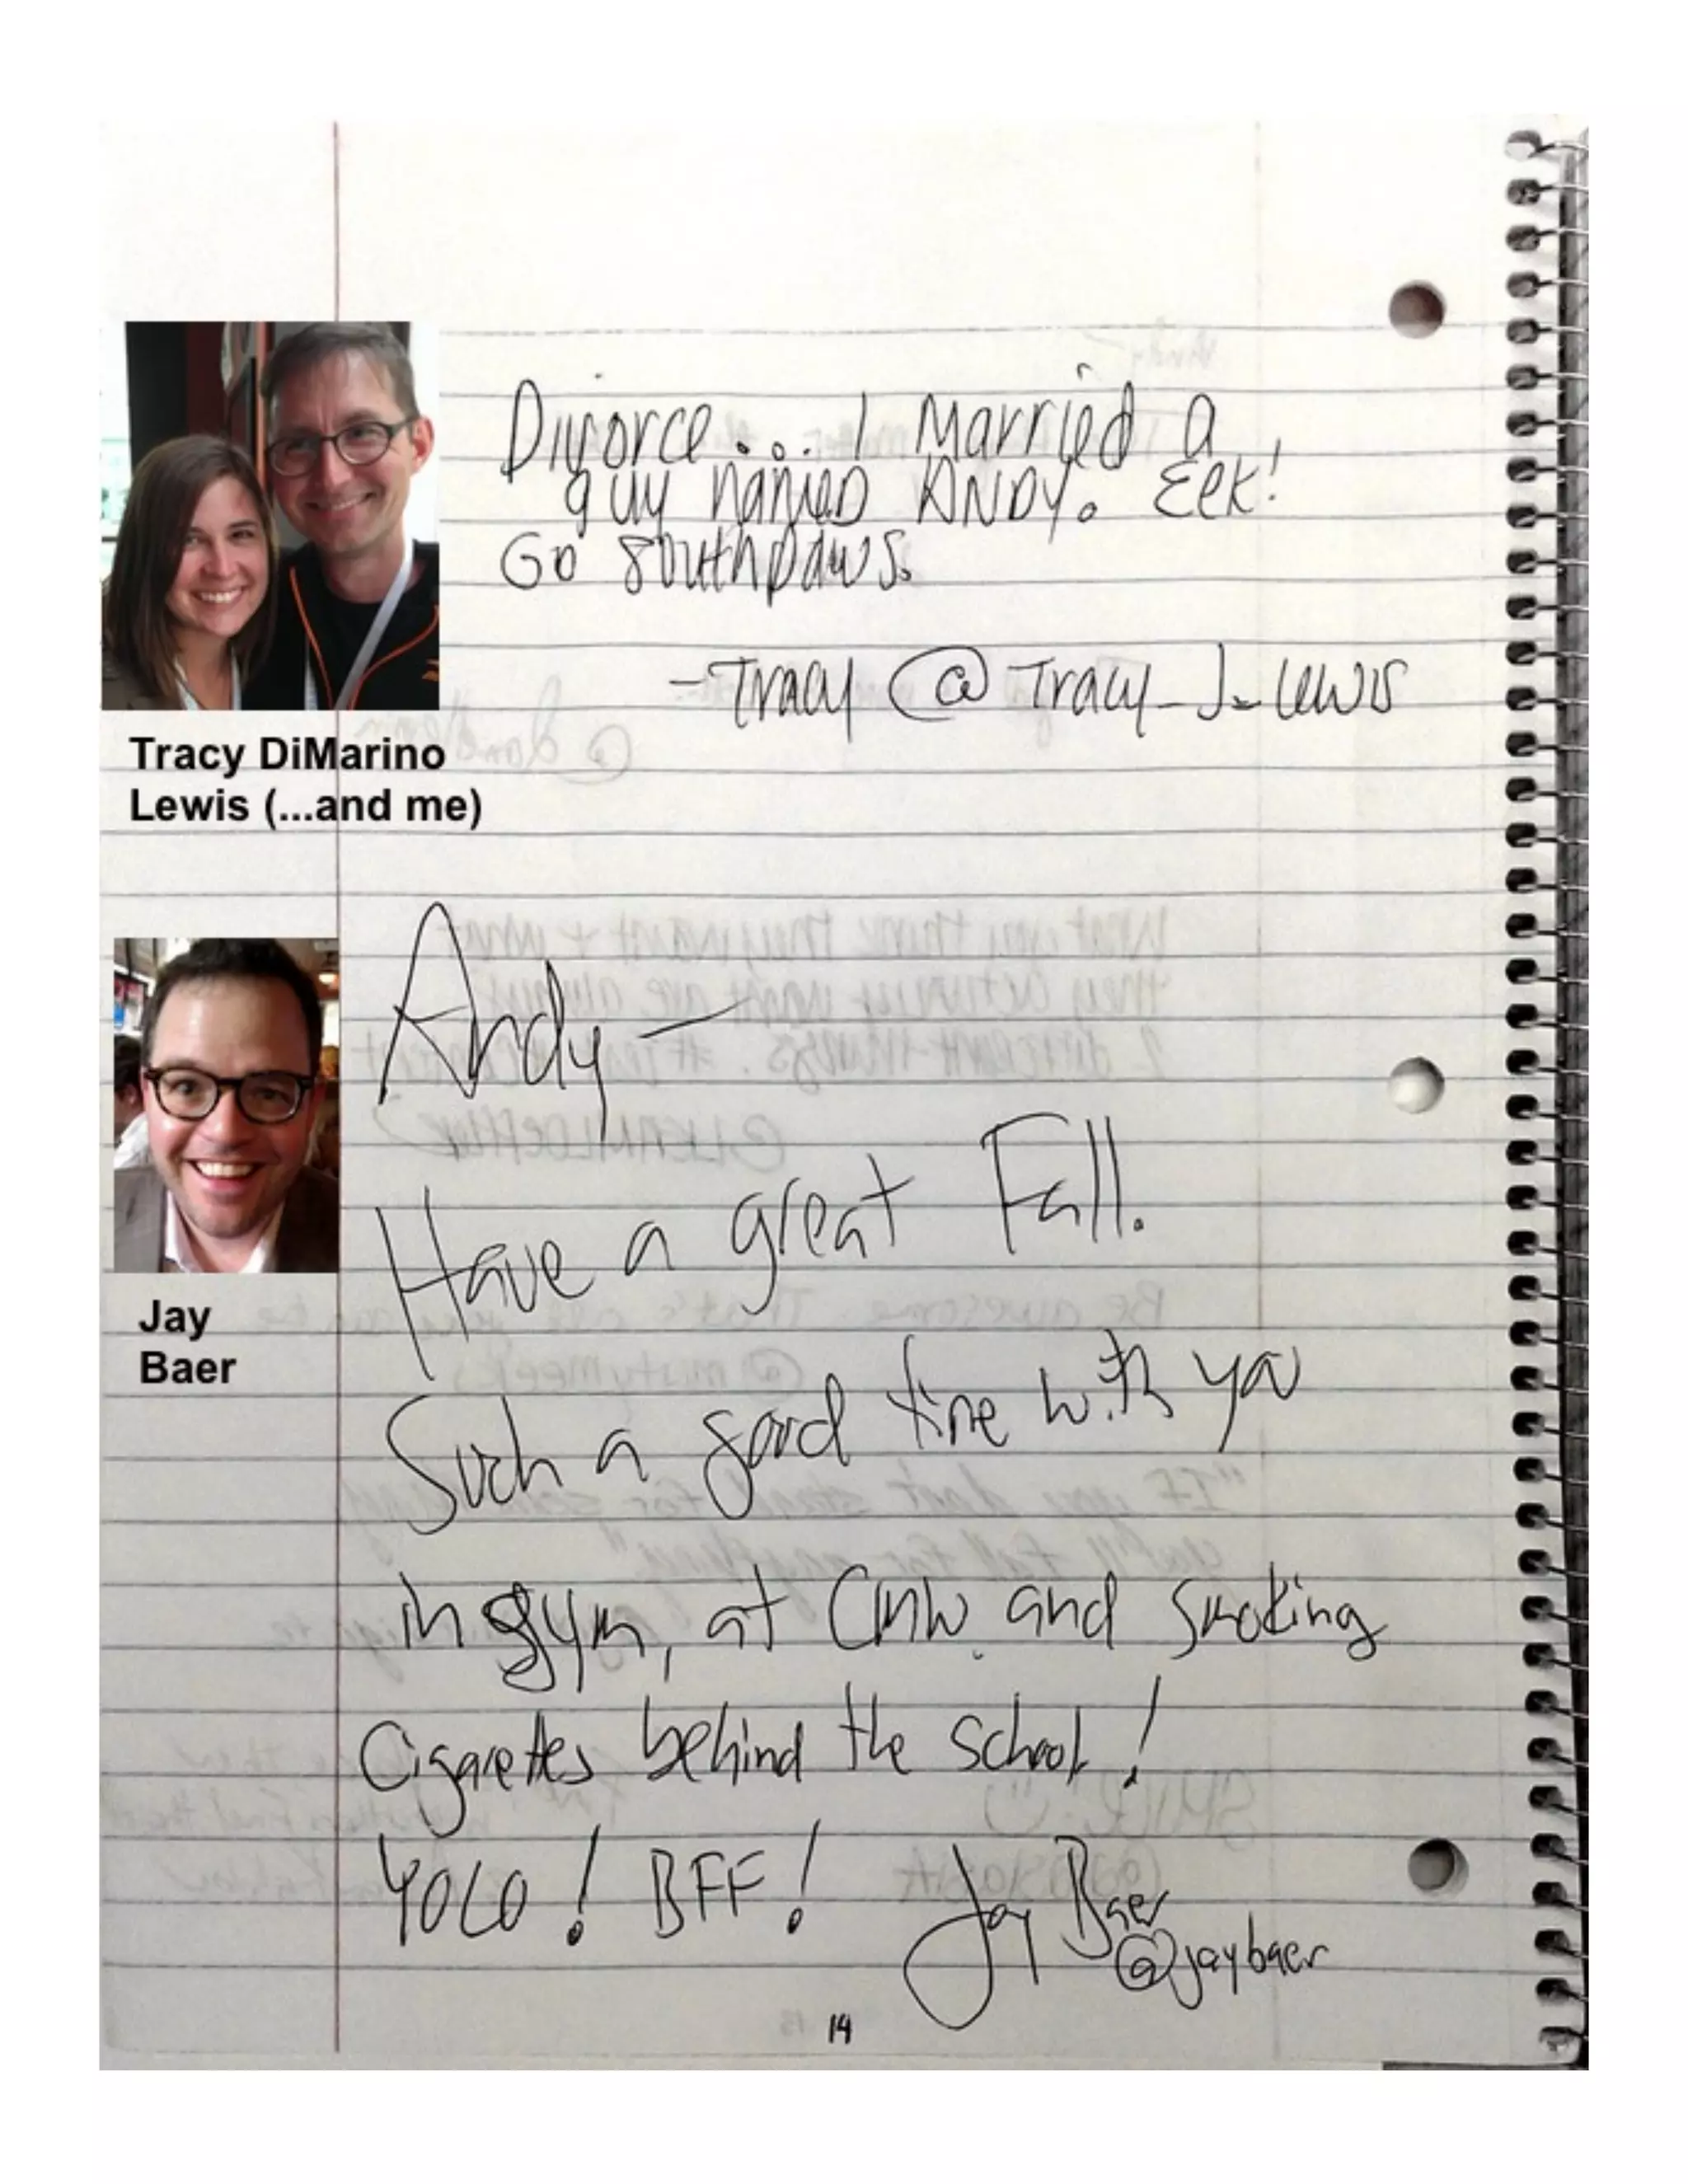 Divorce... I married a
guy named ANDY. Eek!
Go southpaws.
-Tracy @Tracy_J_Lewis
Tracy DiMarino
Lewis (...and me)
Andy—
Have a great Fall.
Jay
Baer
Such a good time with you
in gym, at CMW and smoking
Cigarettes behind the school!
YOLO! BFF! Jay Baer
@jaybaer
14